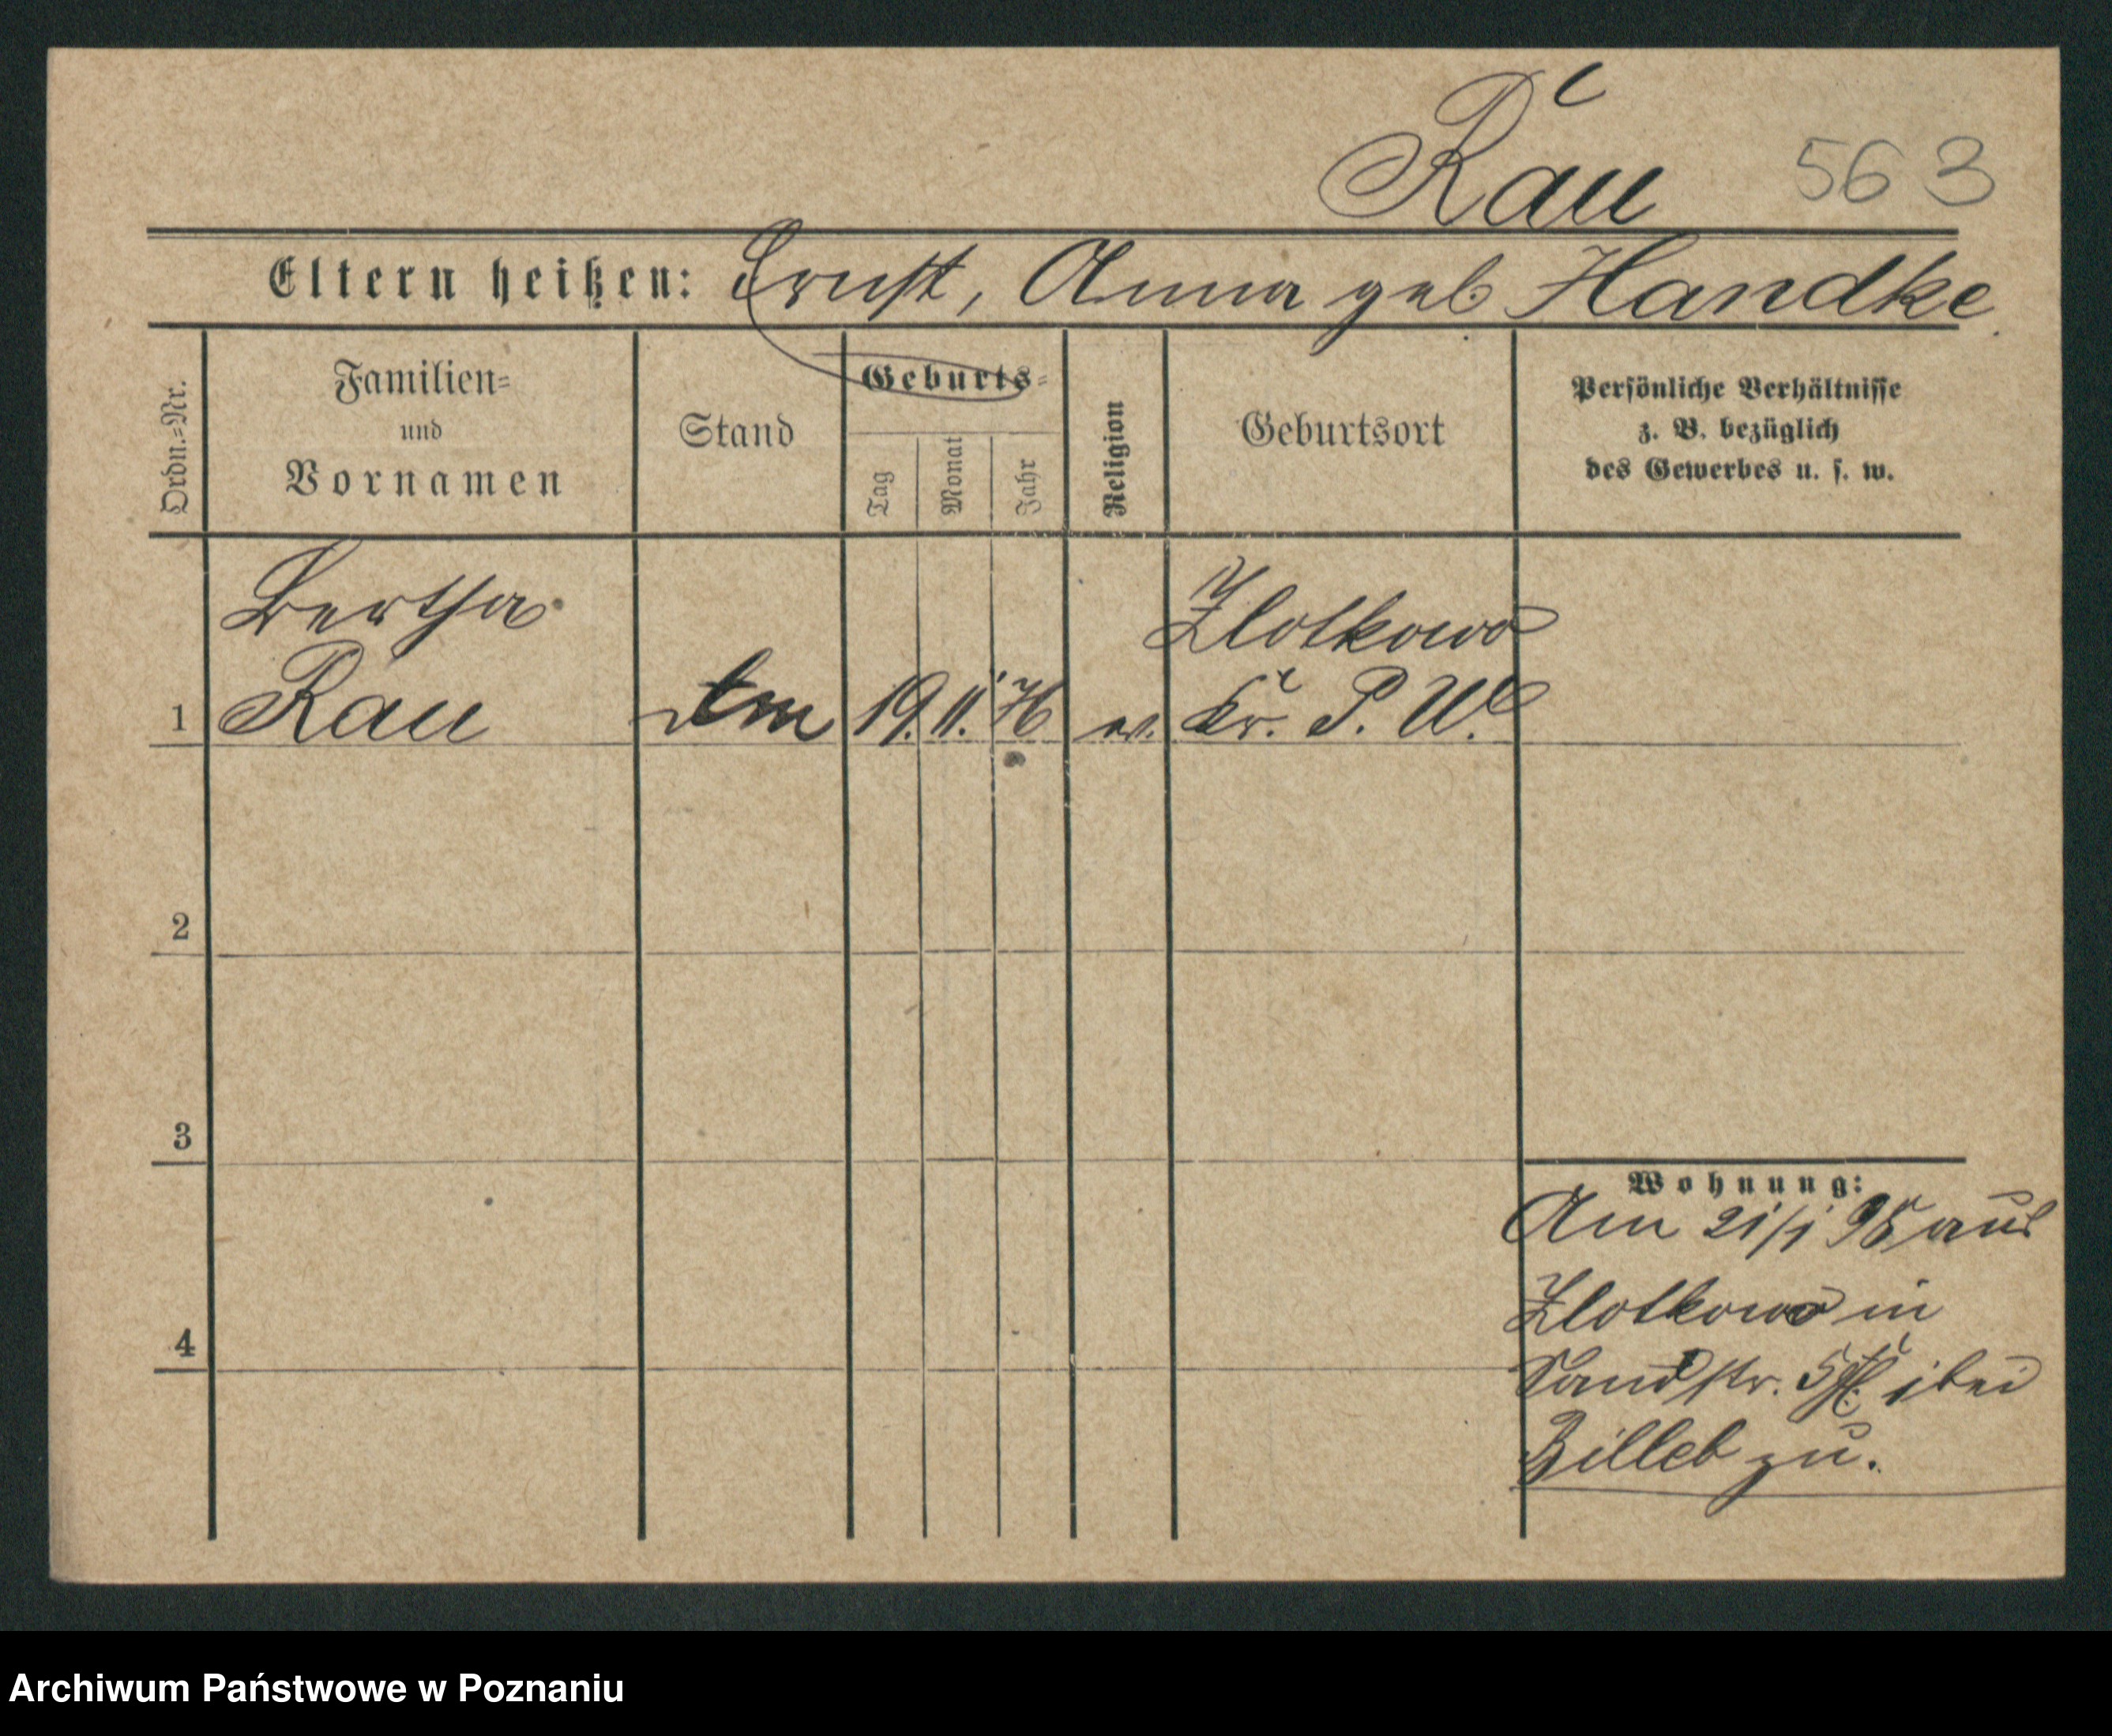 Rau 563
Eltern heißen: Ernst, Anna geb Handke
Ordn.=Nr.
Familien=
und
Vornamen
Stand
Geburts=
Tag
Monat
Jahr
Religion
Geburtsort
Persönliche Verhältnisse
z. B. bezüglich
des Gewerbes u. s. w.
Bertha
Zlotkowo
1 Rau 19. 11. 76 ev. Kr. P. W.
2
3
4
Wohnung:
Am 21/1 95 aus
Zlotkowo in
Sandstr. 5 bei
Billeb zu.
Archiwum Państwowe w Poznaniu